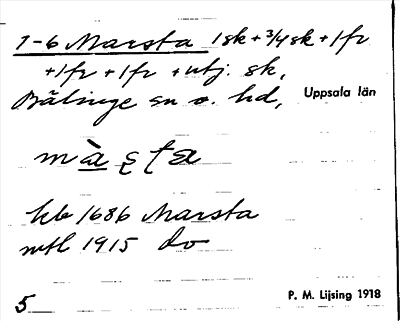 1-6 Marsta 1 sk + 3/4 sk + 1 fr
+ 1 fr + 1 fr + utj. sk,
Bälinge sn o. hd,
Uppsala län
kb 1686 Marsta
mtl 1915 do
5
P. M. Lijsing 1918